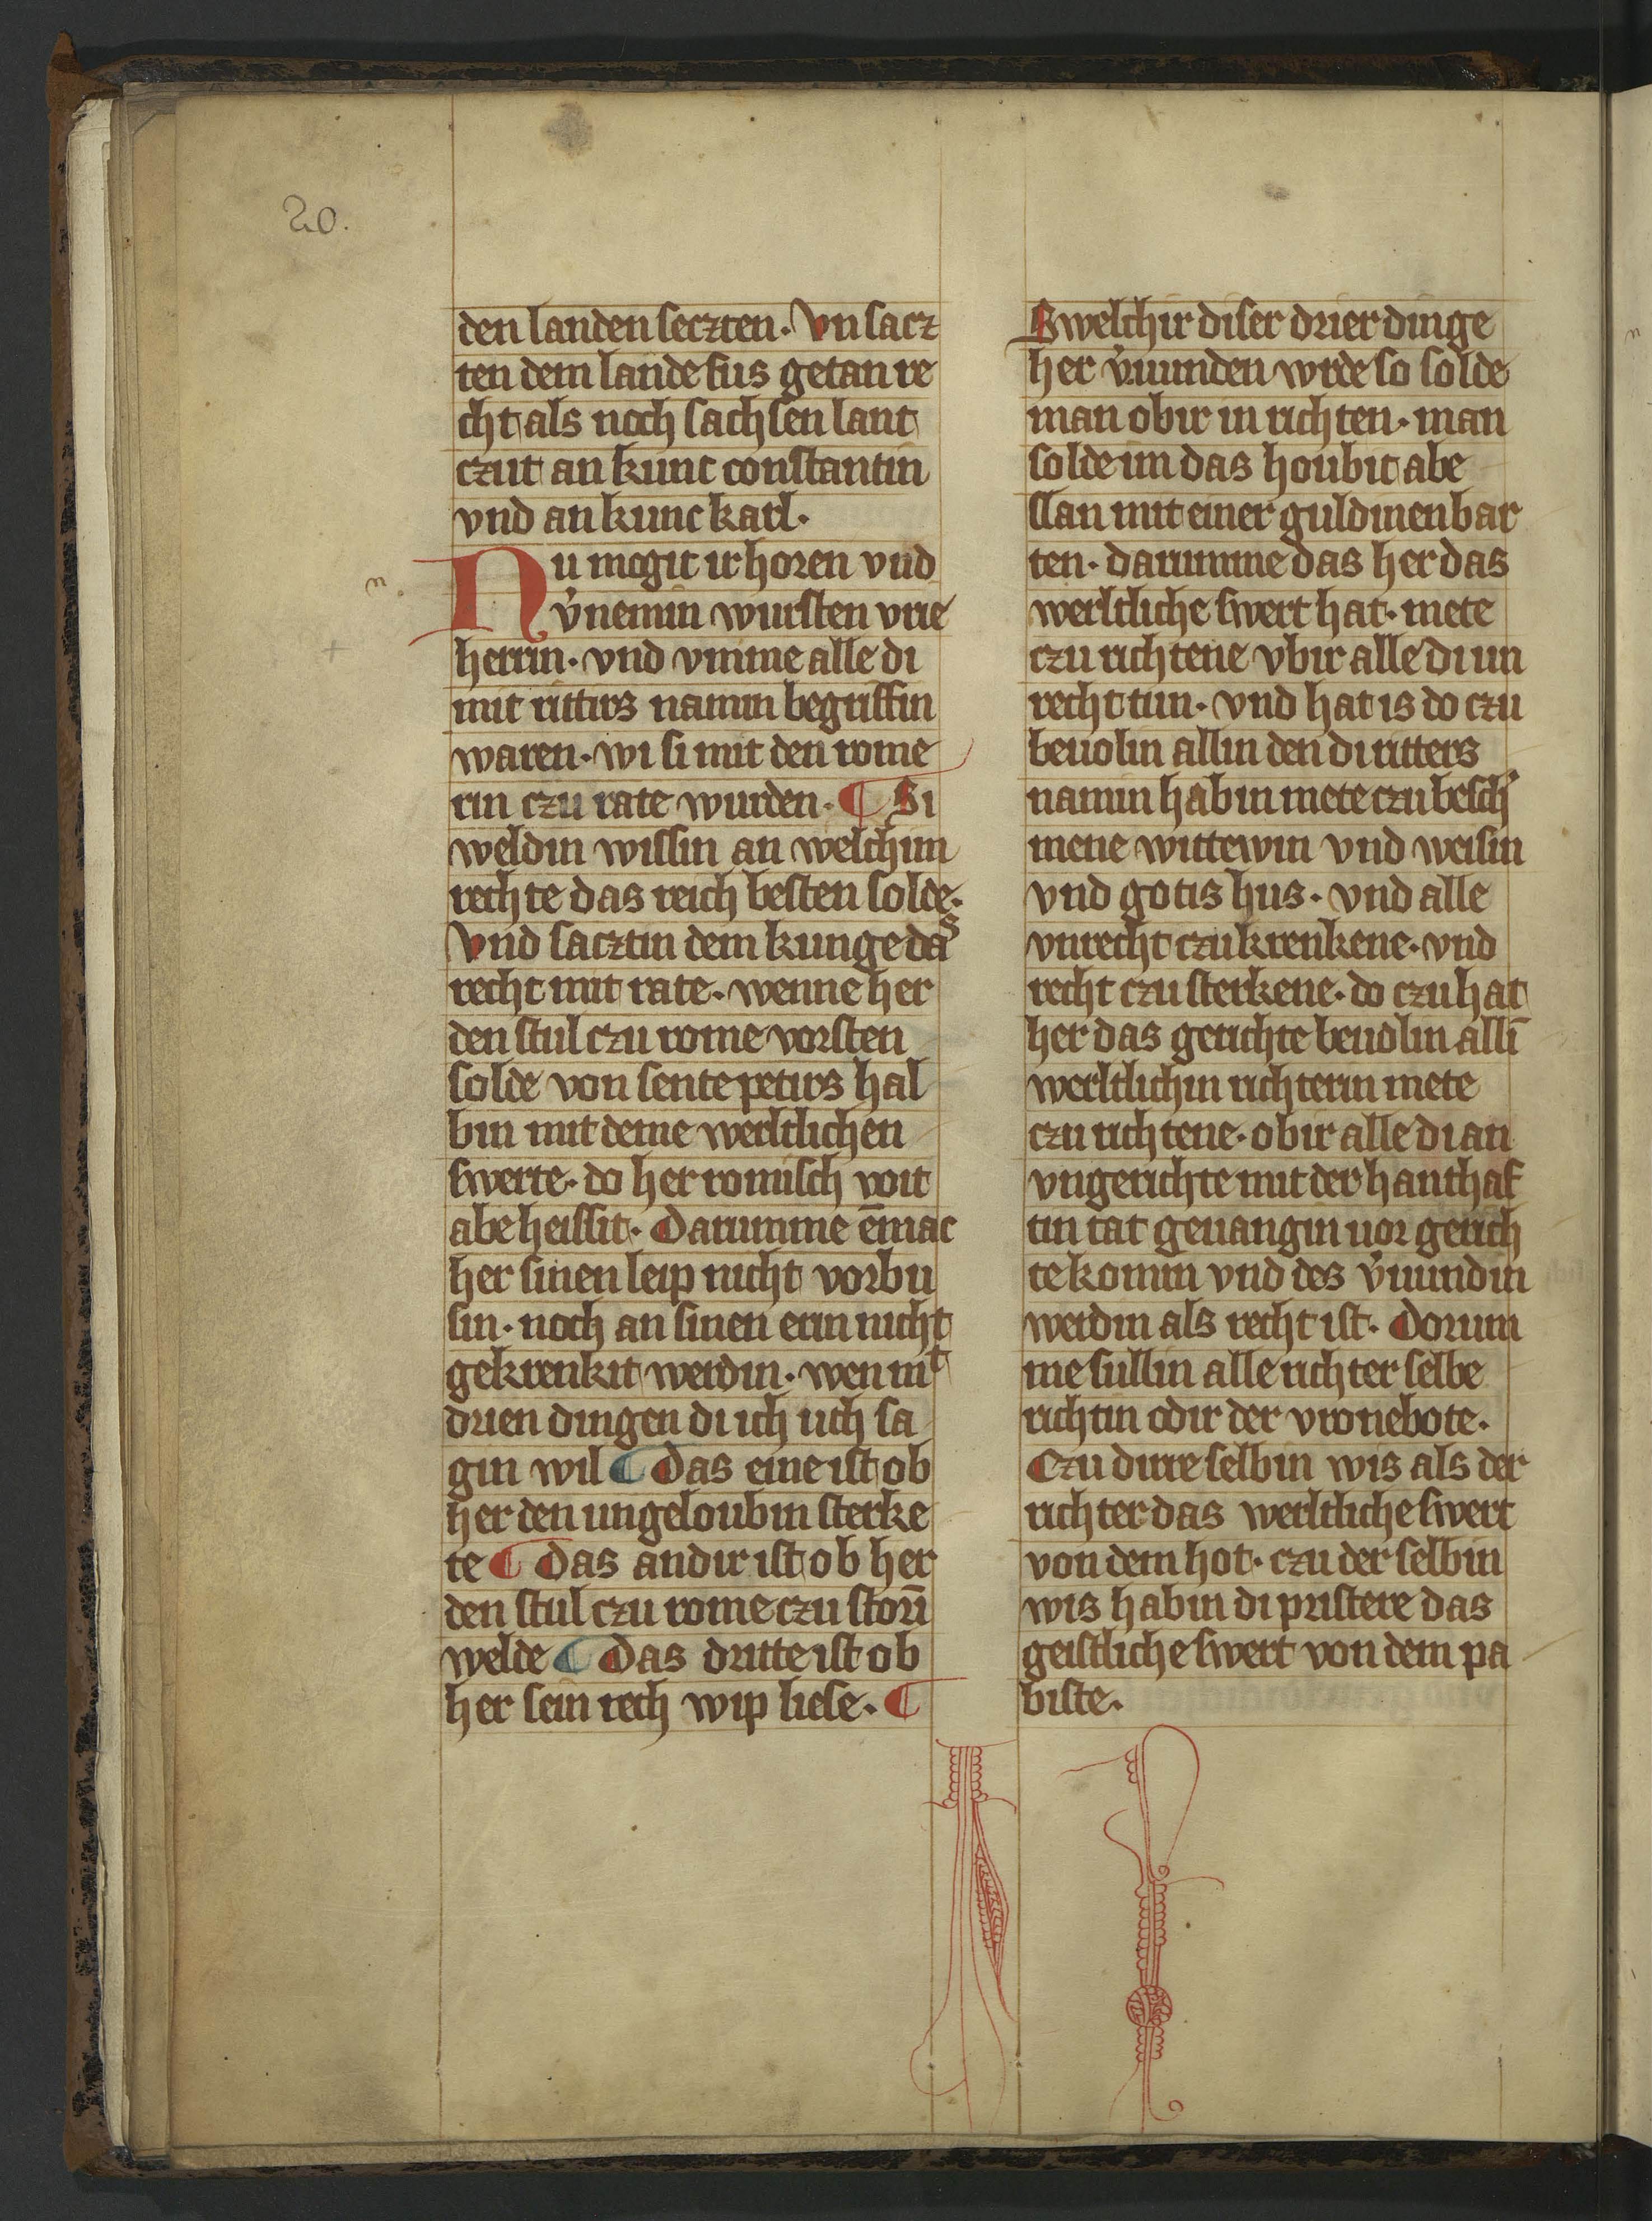 20.
den landen seczten. Vn sacz
ten dem lande sus getan re
cht als noch sachsen lant
czut an kunc constantin
vnd an kunc karl.
Nu mogit ir horen vnd
v̓nemin wursten vrie
herrin. vnd vmme alle di
mit rittirs namin begriffin
waren. wi si mit den rome
rin czu rate wurden. ¶ Si
weldin wissin an welchim
rechte das reich besten solde.
Vnd sacztin dem kunge das
recht mit rate. wenne her
den stul czu rome vorsten
solde von sente petirs hal
bin mit deme werltlichen
swerte. do her romisch voit
abe heissit. Darumme en̄mac
her sinen leip nicht vorbu
sin. noch an sinen erin nicht
gekrenkit werdin. wen mit
drien dingen di ich uch sa
gin wil ¶ Das eine ist ob
her den ungeloubin sterke
te ¶ Das andir ist ob her
den stul czu rome czu storn̄
welde ¶ Das dritte ist ob
her sein rech wip liese. ¶
Swelchir diser drier dinge
her v̓wunden wrde so solde
man obir in richten. man
solde im das houbit abe
slan mit einer guldinen bar
ten. darumme das her das
werltliche swert hat. mete
czu richtene vbir alle di un
recht tun. vnd hat is do czu
beuolin allin den di ritters
namin habin mete czu besch̓
mene wittewin vnd weisin
vnd gotis hus. vnd alle
vnrecht czu krenkene. vnd
recht czu sterkene. do czu hat
her das gerichte beuolin allī
werltlichin richterin mete
czu richtene. obir alle di an
vngerichte mit der hanthaf
tin tat geuangin uor gerich
te komin vnd des v̓wundin
werdin als recht ist. Dorum
me sullin alle richter selbe
richtin odir der vronebote.
Czu dirre selbin wis als der
richter das werltliche swert
von dem hot. czu der selbin
wis habin di pristere das
geistliche swert von dem pa
biste.